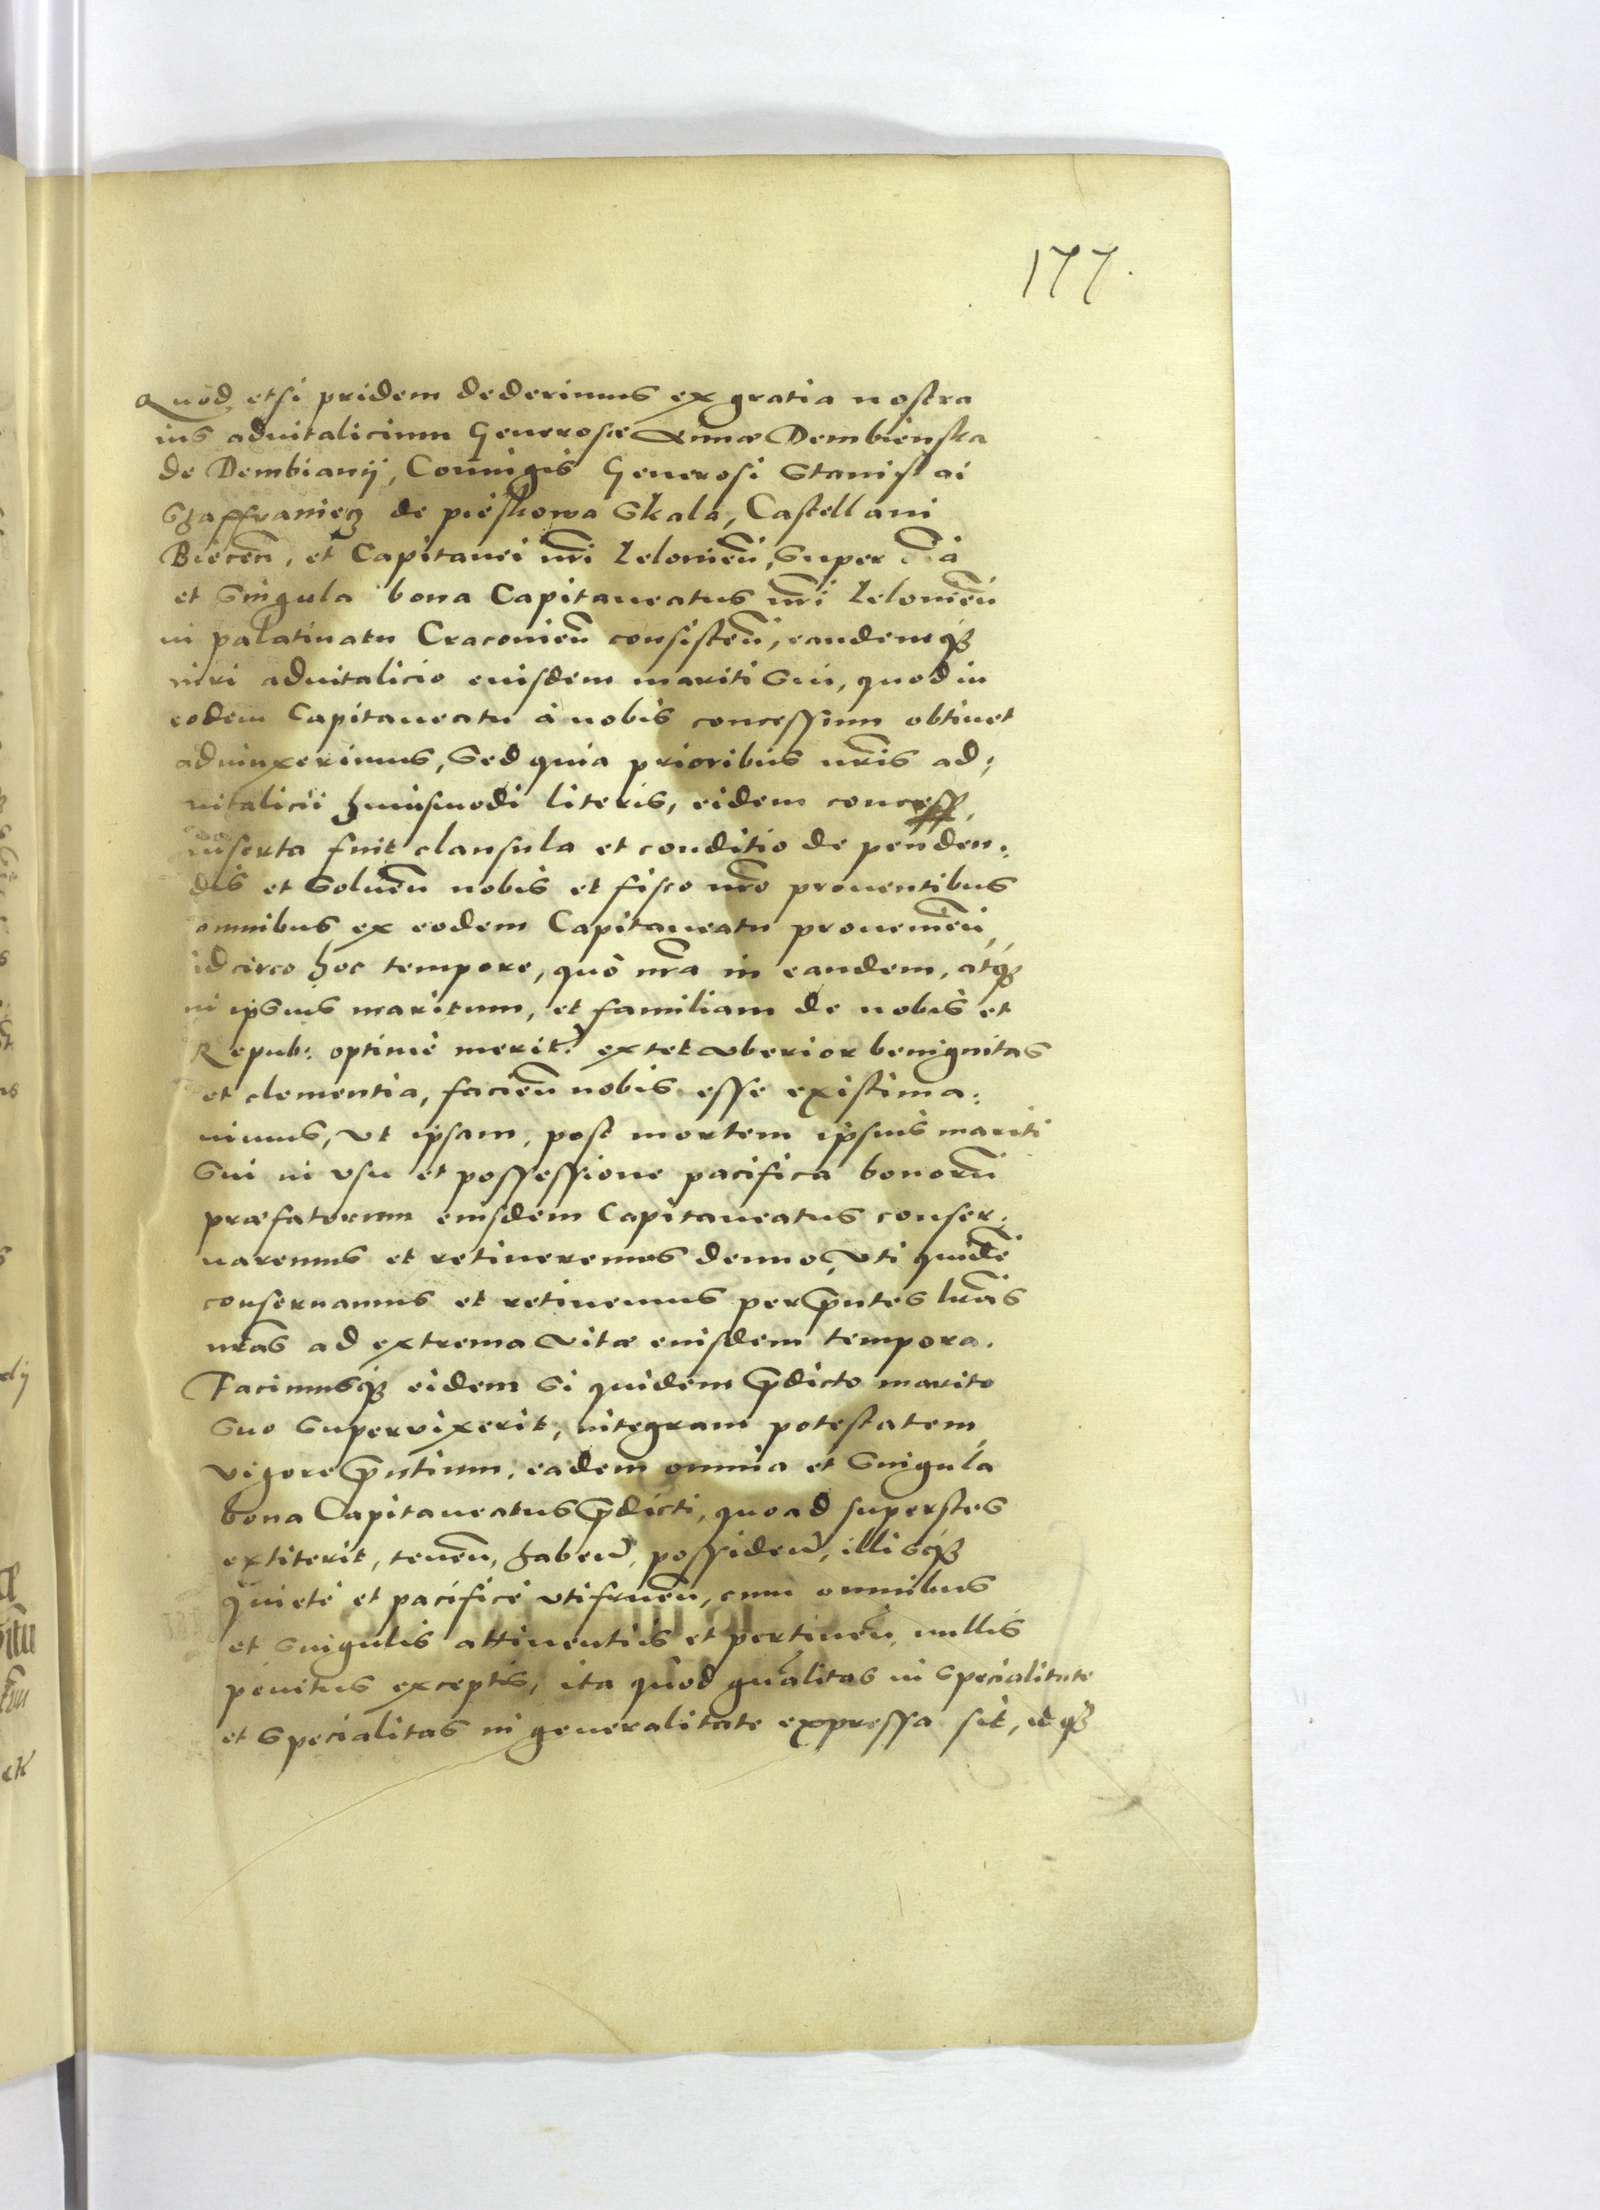 177.
Quod etsi pridem dederimus ex gratia nostra
ius aduitalicium Generosæ Annæ Dembienska
de Dembianÿ, Coniugis Generosi Stanislai
Szaffraniecz de pieskowa Skala, Castellani
Biecen̄, et Capitanei nr̄i Lelouien̄, Super oīa
et Singula bona Capitaneatus nr̄i Lelouien̄
in palatinatu Cracouien̄ consisten̄, eandemq3
iuri aduitalicio eiusdem mariti Sui, quod in
eodem Capitaneatu à nobis concessum obtinet
adiunxerimus, Sed quia prioribus nr̄is ad:
uitalicii huiusmodi literis, eidem concess,
inserta fuit clausula et conditio de penden:
dis et Soluen̄ nobis et fisco nr̄o prouentibus
omnibus ex eodem Capitaneatu prouenien̄,
idcirco hoc tempore, quò nr̄a in eandem, atq3
in ipsius maritum, et familiam de nobis et
Repub: optimè merit: extet vberior benignitas
et clementia, facien̄ nobis esse existima:
uimus, vt ipsam, post mortem ipsius mariti
Sui in vsu et possessione pacifica bonorū
præfatorum eiusdem Capitaneatus conser:
uaremus et retineremus denuo, vti quidē
conseruamus et retinemus per p̄ntes lr̄as
nr̄as ad extrema vitæ eiusdem tempora.
Facimusq3 eidem Si quidem p̄dicto marito
Suo Supervixerit, integram potestatem,
vigore p̄ntium, eadem omnia et Singula
bona Capitaneatus p̄dicti, quoad superstes
extiterit, tenen̄, haben̄, possiden̄, illisq3
quietè et pacificè vtifruen̄, cum omnibus
et Singulis attinentiis et pertinen̄, nullis
penitus exceptis, ita quod gn̄alitas in Specialitate
et Specialitas in generalitate expressa sit, idq3